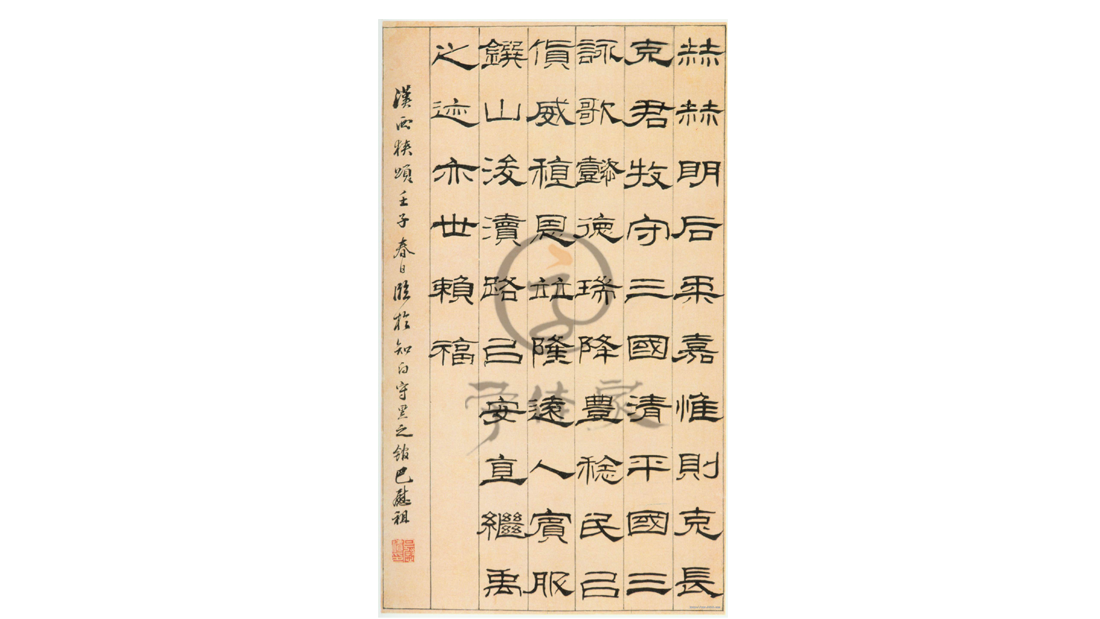 赫赫明后柔嘉惟則克長
克君牧守三國清平國三
詠歌懿德瑞降豊稔民㠯
貨威稙恩竝隆遠人賓服
鐫山浚瀆路㠯安直繼禹
之迹亦世賴福
漢西狹頌壬子春日臨於知白守黑之館巴慰祖
字体家